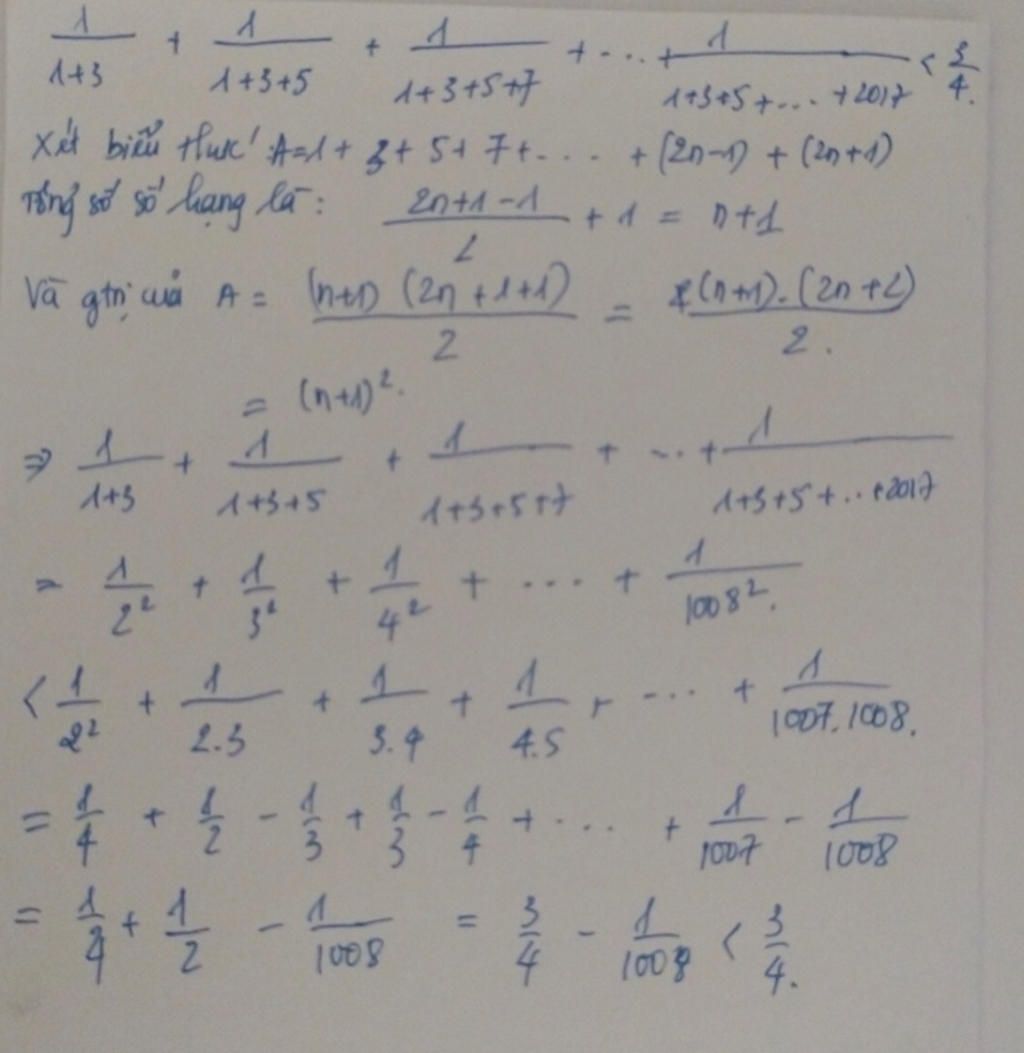 1/(1+3) + 1/(1+3+5) + 1/(1+3+5+7) + ... + 1/(1+3+5+... +2017) < 3/4.
Xét biểu thức: A=1+3+5+7+... +(2n-1)+(2n+1)
Tổng số số hạng là: (2n+1-1)/2 + 1 = n+1
Và gtrị của A = (n+1)(2n+1+1)/2 = (n+1).(2n+2)/2.
= (n+1)².
⇒ 1/(1+3) + 1/(1+3+5) + 1/(1+3+5+7) + ... + 1/(1+3+5+..+2017)
= 1/2² + 1/3² + 1/4² + ... + 1/1008².
< 1/2² + 1/2.3 + 1/3.4 + 1/4.5 + ... + 1/1007.1008.
= 1/4 + 1/2 - 1/3 + 1/3 - 1/4 + ... + 1/1007 - 1/1008
= 1/4 + 1/2 - 1/1008 = 3/4 - 1/1008 < 3/4.